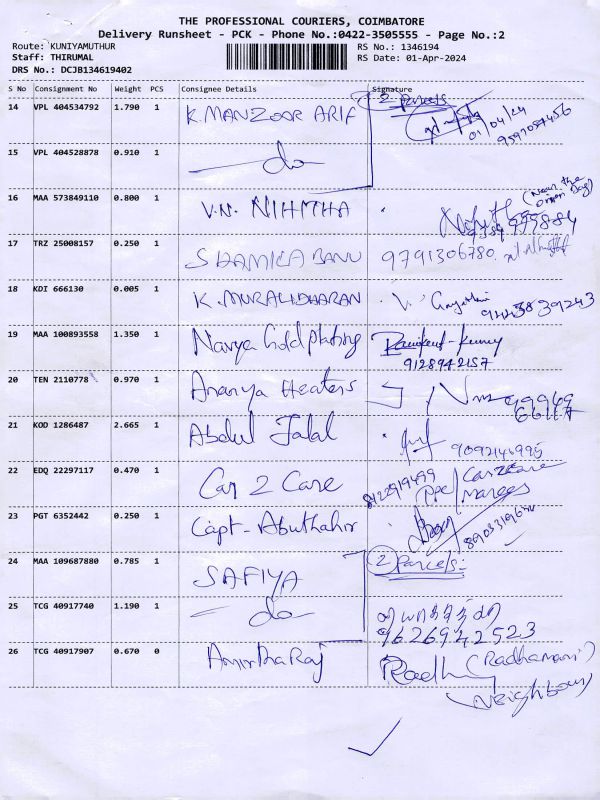 THE PROFESSIONAL COURIERS, COIMBATORE
Delivery Runsheet - PCK - Phone No.:0422-3505555 - Page No.:2
Route: KUNIYAMUTHUR RS No.: 1346194
Staff: THIRUMAL RS Date: 01-Apr-2024
DRS No.: DCJB134619402
S No Consignment No Weight PCS Consignee Details Signature
14 VPL 404534792 1.790 1 K.MANZOOR ARIF 2 Parcels
01/04/24
15 VPL 404528878 0.910 1 do
16 MAA 573849110 0.800 1 V.N. NIHITHA
17 TRZ 25008157 0.250 1 SHAMILA BANU 9791306780
18 KDI 666130 0.005 1 K. MURALIDHARAN
19 MAA 100893558 1.350 1 Navya Gold plating
9128942157
20 TEN 2110778 0.970 1 Ananya Heaters
21 KOD 1286487 2.665 1 Abdul Jalal
22 EDQ 22297117 0.470 1 Car 2 Care Car2Care
23 PGT 6352442 0.250 1 Capt-Abuthahir
24 MAA 109687880 0.785 1 SAFIYA 2 Parcels:
25 TCG 40917740 1.190 1 do
9626942523
26 TCG 40917907 0.670 0 Amirtharaj (Radhamani)
(Neighbour)